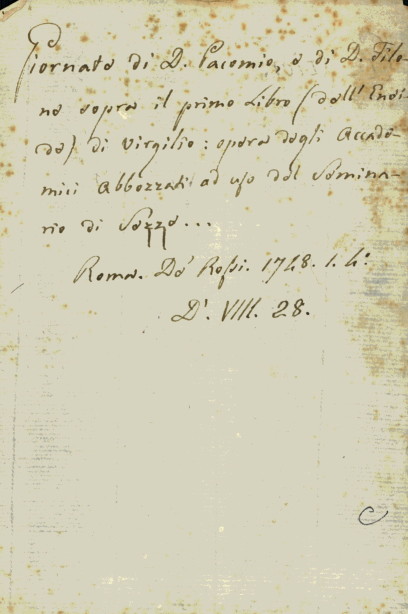 Giornate di D. Pacomio, e di D. Filo-
no sopra il primo Libro (dell' Enei-
de) di Virgilio: opera degli Accade-
mici Abbozzati ad uso del Semina-
rio di Sezze...
Roma. De' Rossi. 1748. 1. 4:
D'. VIII. 28.
C